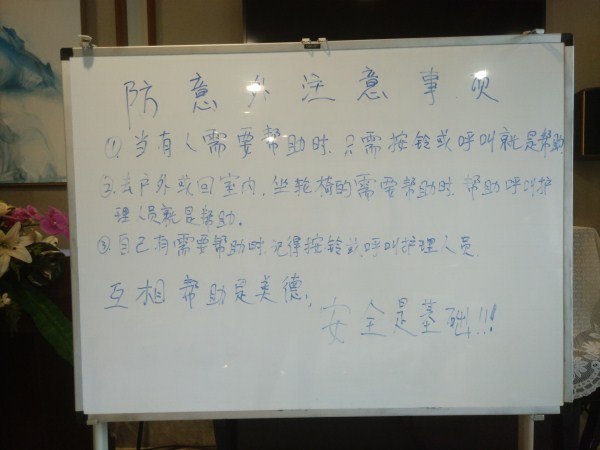 防意外注意事项
①当有人需要帮助时.只需按铃或呼叫就是帮助
②去户外或回室内.坐轮椅的需要帮助时.帮助呼叫护
理人员就是帮助。
③自己有需要帮助时.记得按铃或呼叫护理人员.
互相帮助是美德,
安全是基础!!!